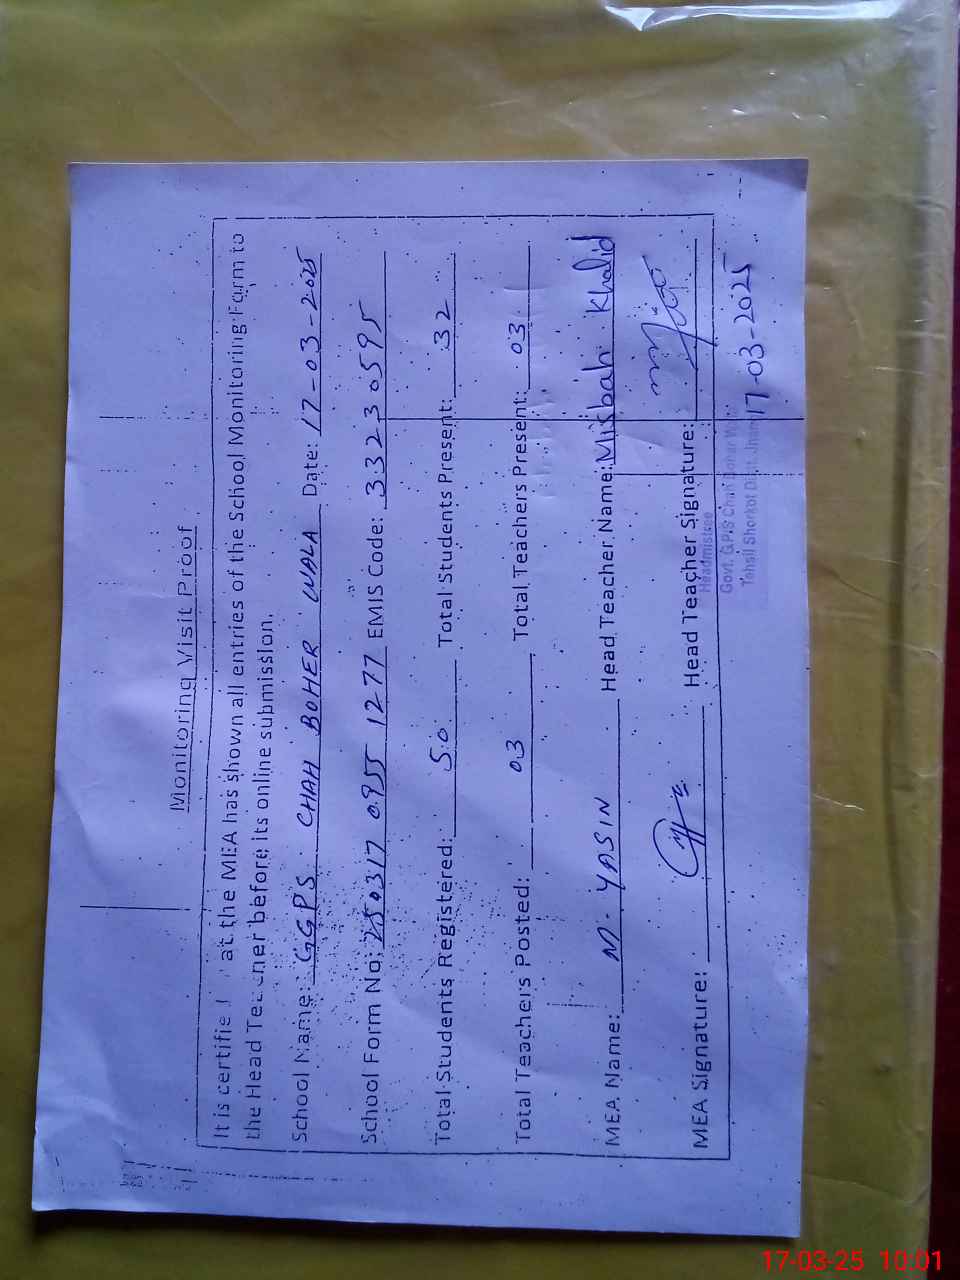 Monitoring Visit Proof
It is certified at the MEA has shown all entries of the School Monitoring Form to
the Head Teacher before its online submission.
School Name: GGPS CHAH BOHER WALA Date: 17-03-2025
School Form No: 250317 0955 1277 EMIS Code: 33230595
Total Students Registered: 50 Total Students Present: 32
Total Teachers Posted: 03 Total Teachers Present: 03
MEA Name: M. YASIN Head Teacher Name: Misbah Khalid
MEA Signature: Head Teacher Signature:
Headmistress
Govt. G.P/S Chah Bohar Wala
Tehsil Shorkot Distt. Jhang
17-03-2025
17-03-25 10:01